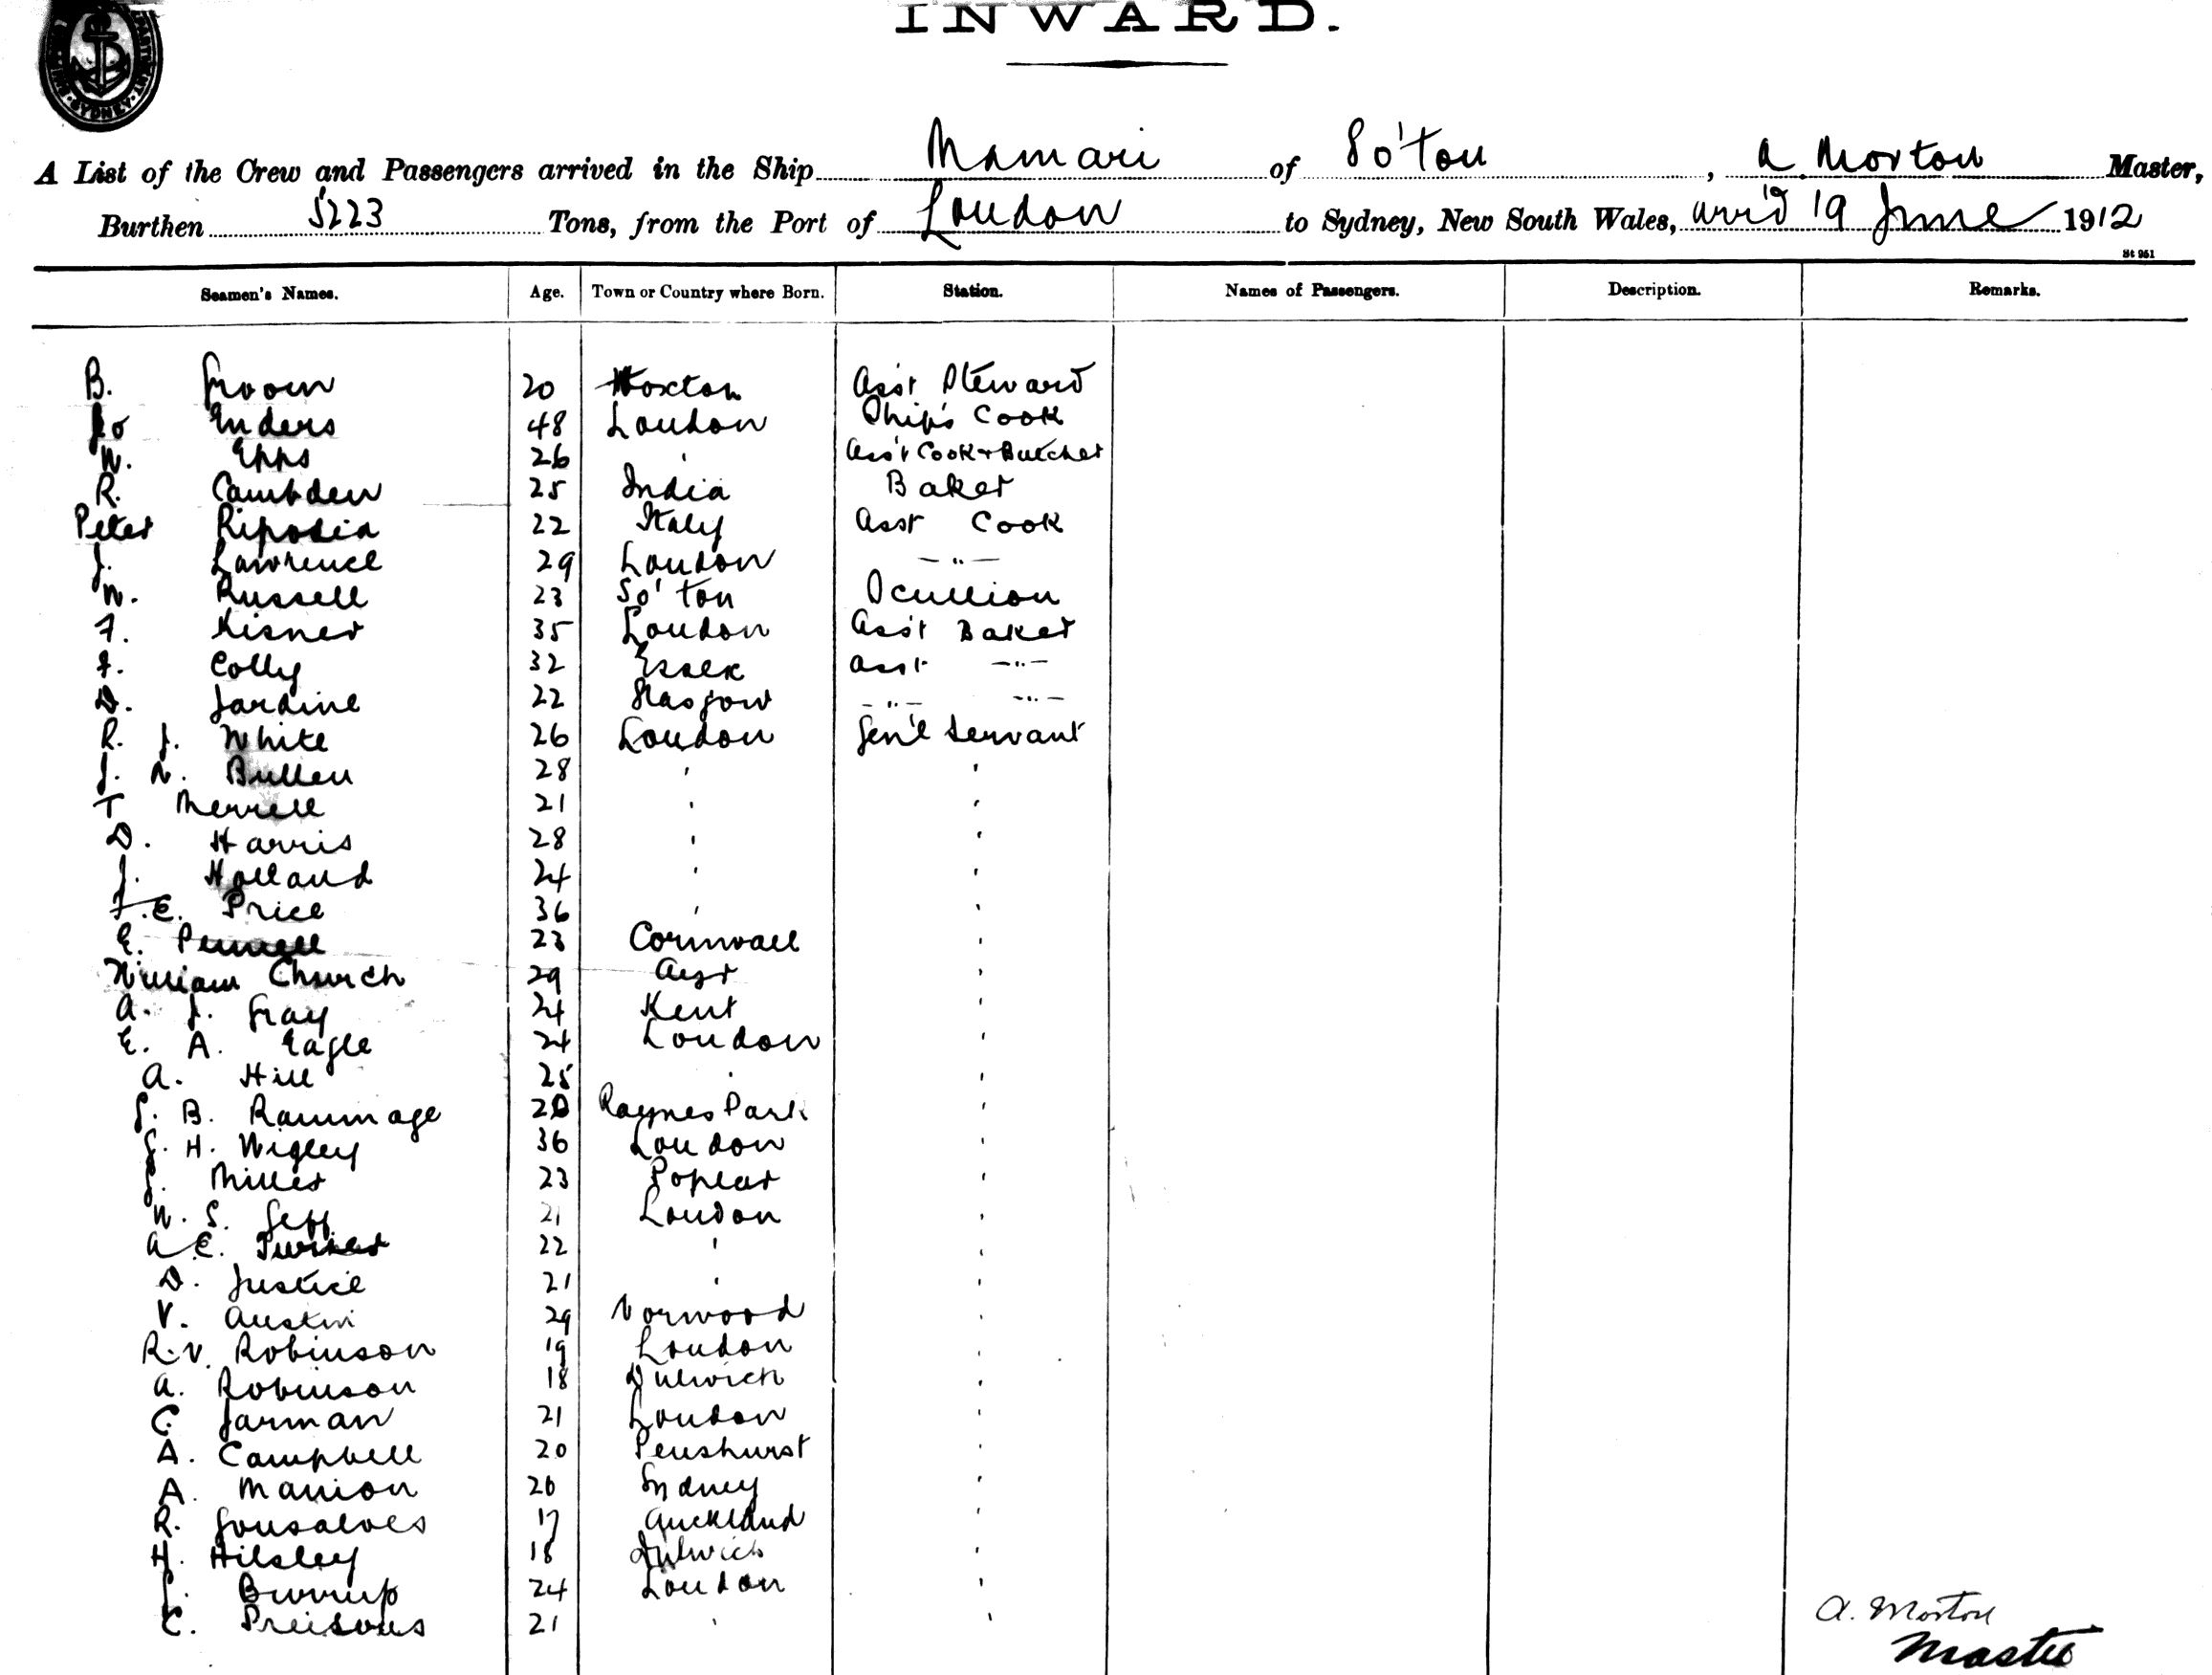 INWARD.
A List of the Crew and Passengers arrived in the Ship Mamari of So'ton, A. Morton Master,
Burthen 5223 Tons, from the Port of London to Sydney, New South Wales, arr'd 19 June 1912
St 951
Seamen's Names. Age. Town or Country where Born. Station. Names of Passengers. Description. Remarks.
B. Groom 20 Hoxton Ass't Steward
Jo Enders 48 London Ship's Cook
W. Epps 26 ' Ass't Cook & Butcher
R. Cambden 25 India Baker
Peter Riposia 22 Italy Asst Cook
J. Lawrence 29 London — " —
W. Russell 23 So'ton Scullion
F. Kisner 35 London Ass't Baker
F. Colly 32 Essex Asst — " —
D. Jardine 22 Glasgow — " — — " —
R. J. White 26 London Gen'l Servant
J. W. Bullen 28 ' '
T Merrell 21 ' '
D. Harris 28 ' '
J. Holland 24 ' '
F. E. Price 36 '
E. 23 Cornwall '
William Church 29 '
A. J. Gray 24 Kent '
E. A. Eagle 24 London '
A. Hill 25 ' '
G. B. Rammage 20 Raynes Park '
G. H. Wigley 36 London '
G. Miller 23 Poplar '
W. S. 21 London '
A E. Turner 22 ' '
D. Justice 21 ' '
V. Austin 29 Norwood '
R. V. Robinson 19 London '
A. Robinson 18 Dulwich '
C. Jarman 21 London '
A. Campbell 20 Penshurst '
A. Manion 20 Sydney '
R. Gonsalves 17 Auckland '
H. Hilsley 18 Dulwich '
J. Burrup 24 London '
C. 21 ' '
A. Morton
Master